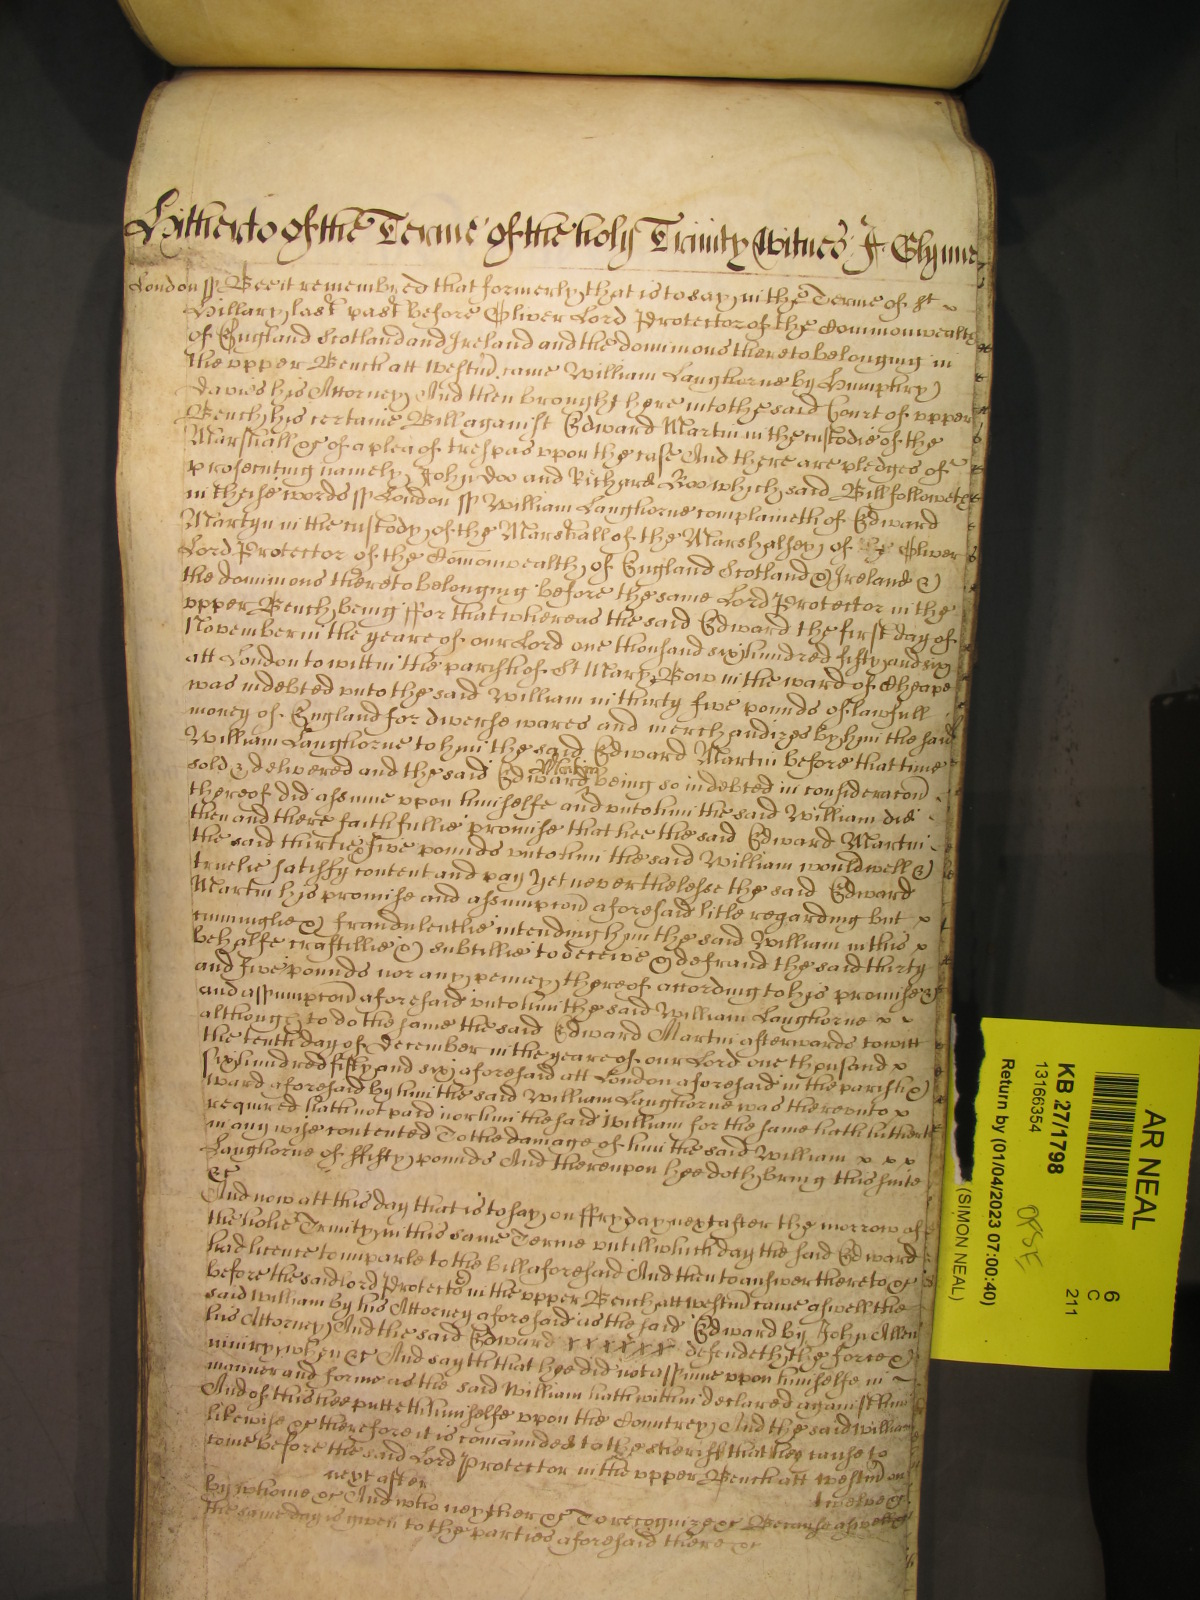 Hitherto of the Terme of the holy Trinity Witnes J. Glynne
London ss Bee it remembred that formerly that is to say in the Terme of St
Hillary last past before Oliver Lord Protector of the Commonwealth
of England Scotland and Ireland and the dominions thereto belonging in
the upper Bench att Westm̄ came William Langhorne by Humphry
Davies his Attorney And then brought here into the said Court of upper
Bench his certaine Bill against Edward Martin in the custodie of the
Marshall &c of a plea of trespas upon the case And there are pledges of
prosecuting namely John Doo and Richard Roo which said Bill followeth
in theise words ss London ss William Langhorne complaineth of Edward
Martyn in the custody of the Marshall of the Marshalsey of Oliver
Lord Protector of the Com̄onwealth of England Scotland & Ireland &
the dominions thereto belonging before the same Lord Protector in the
upper Bench being ffor that whereas the said Edward the first day of
November in the yeare of our Lord one thousand six hundred fifty and six
att London to witt in the parish of St Mary Bow in the ward of Cheape
was indebted unto the said William in thirty five pounds of lawfull
money of England for diverse wares and merchandizes by him the said
William Langhorne to him the said Edward Martin before that time
sold & delivered and the said Edward Martin being so indebted in consideracon̄
thereof did assume upon himselfe and unto him the said William did
then and there faithfullie promise that hee the said Edward Martin
the said thirtie five pounds unto him the said William would well &
truelie satisfy content and pay Yet neverthelesse the said Edward
Martin his promise and assumpcon̄ aforesaid litle regarding but x
cunninglie & fraudulentlie intending him the said William in this x
behalfe craftillie & subtillie to deceive & defraud the said thirty
and five pounds nor any penney thereof according to his promise &
and assumpcon̄ aforesaid unto him the said William Langhorne x x
although to do the same the said Edward Martin afterwards to witt
the tenth day of December in the yeare of our Lord one thousand x
six hundred fifty and six aforesaid att London aforesaid in the parish &
ward aforesaid by him the said William Langhorne was thereunto x
required hath not paid nor him the said William for the same hath hitherto
in any wise contented To the damage of him the said William x x x
Langhorne of ffifty pounds And thereupon hee doth bring this suite
&c
And now att this day that is to say on ffryday next after the morrow of
the holie Trinity in this same Terme untill which day the said Edward
had licence to imparle to the bill aforesaid And then to answer thereto &c
before the said Lord Protector in the upper Bench att Westm̄ came aswell the
said William by his Attorney aforesaid as the said Edward by John Allen
his Attorney And the said Edward x x x x x x defendeth the force &
iniury when &c And sayth that hee did not assume upon himselfe in
manner and forme as the said William hath within declared against him
And of this hee putteth himselfe upon the Countrey And the said William
likewise &c therefore it is com̄anded to the sheriff that hee cause to
come before the said Lord Protector in the upper Bench att Westm̄ on
next after twelve &c
by whome &c And who neyther &c To recognize &c Because aswell &c
the same day is given to the parties aforesaid there &c
AR NEAL
6
C
211
KB 27/1798
13166354
Return by (01/04/2023 07:00:40)
(SIMON NEAL)